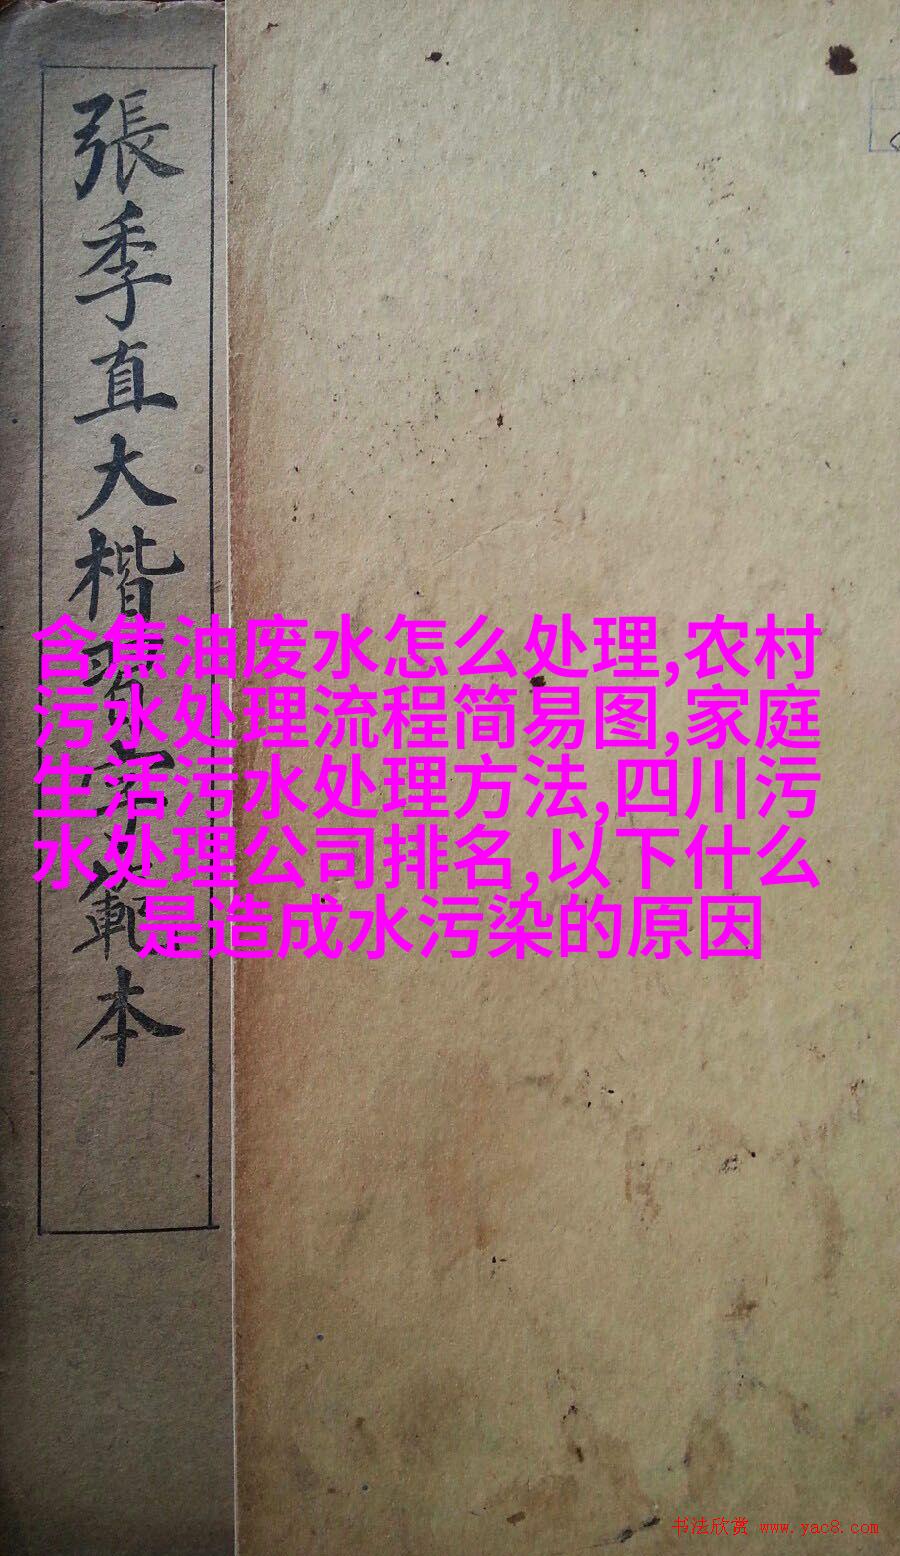 張季直大楷習字範本
含焦油废水怎么处理,农村
污水处理流程简易图,家庭
生活污水处理方法,四川污
水处理公司排名,以下什么
是造成水污染的原因
书法欣赏 www.yac8.com